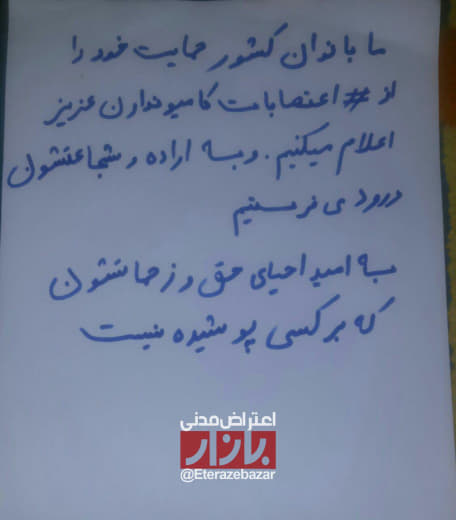 ما بانوان کشور حمایت خود را
از # اعتصابات کامیونداران عزیز
اعلام میکنیم. و به اراده و شجاعتشون
درود می فرستیم
به امید احیای حق و زحماتشون
که بر کسی پوشیده نیست
اعتراض مدنی
بازار
@Eterazebazar